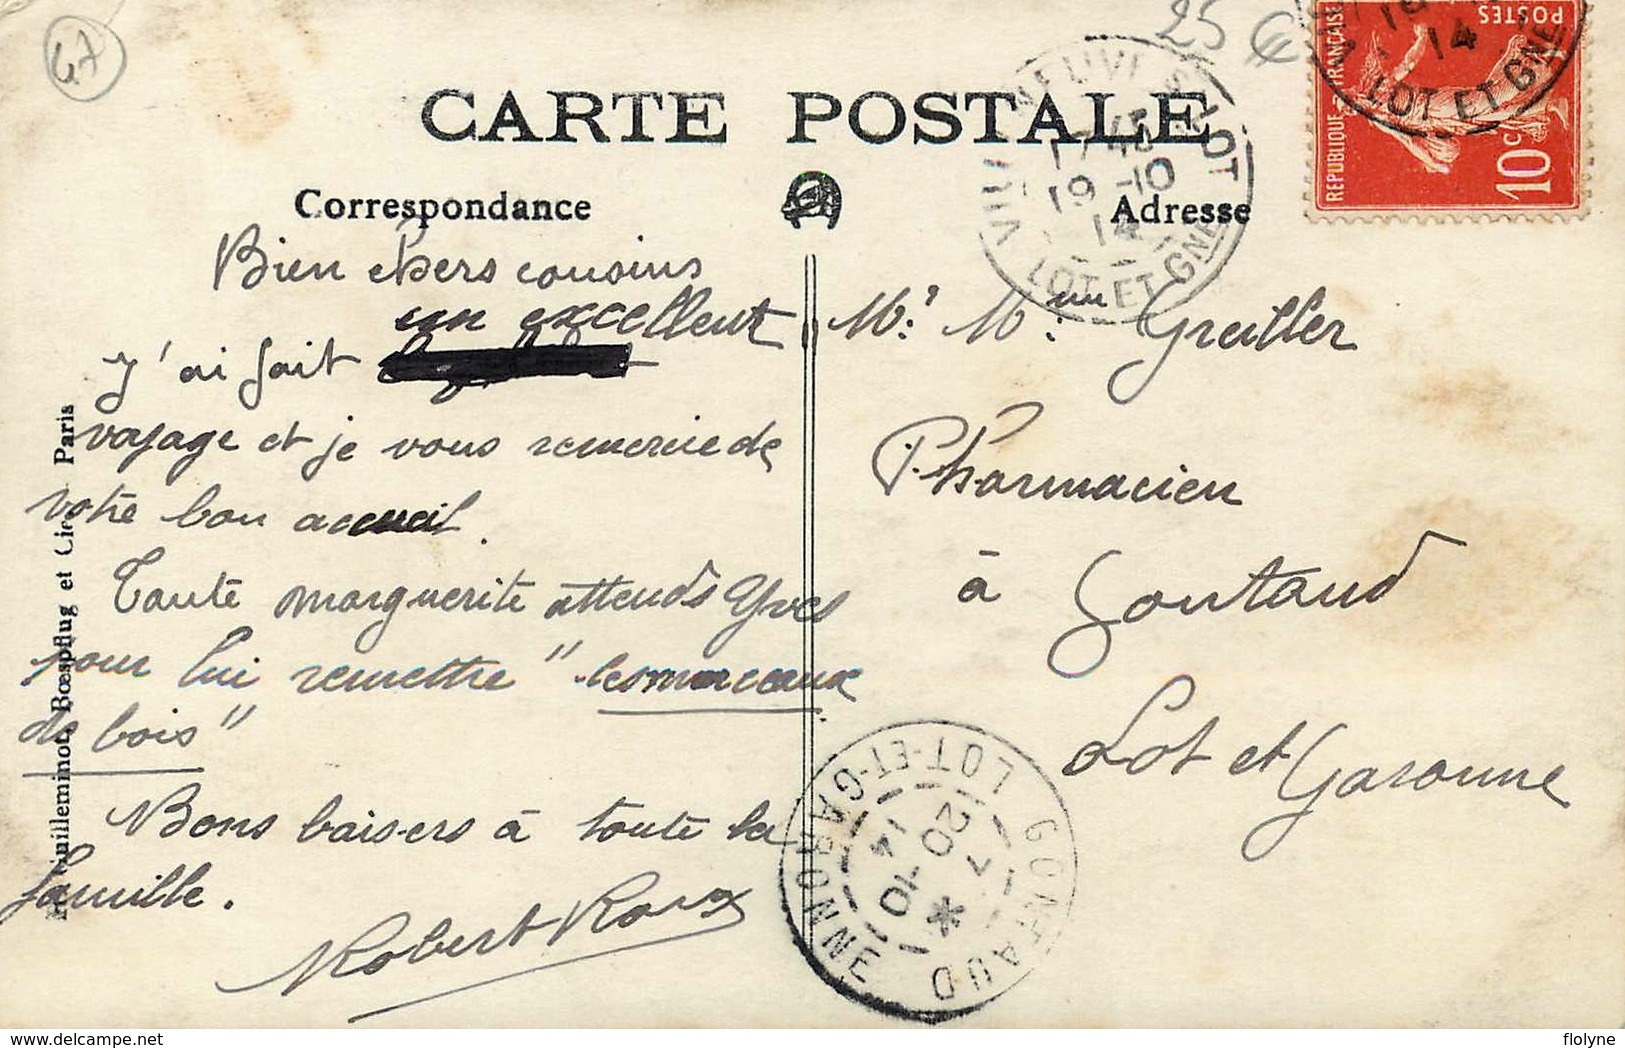 47
25 €
CARTE POSTALE
Correspondance
Adresse
Bien chers cousins
un excellent
J'ai fait
voyage et je vous remercie de
votre bon accueil.
Tante marguerite attends Yves
pour lui remettre "les morceaux
de bois"
Bons baisers à toute la
famille.
Robert Roux
Mr. Mme. Greiller
Pharmacien
à Gontaud
Lot et Garonne
Guilleminot, Bœspflug et Cie Paris
REPUBLIQUE FRANÇAISE
POSTES
10c
14
LOT ET GNE
VILLENEUVE S. LOT
17 45
19 -10
14
LOT ET GNE
GONTAUD
LOT-ET-GARONNE
7
20 -10
14
flolyne